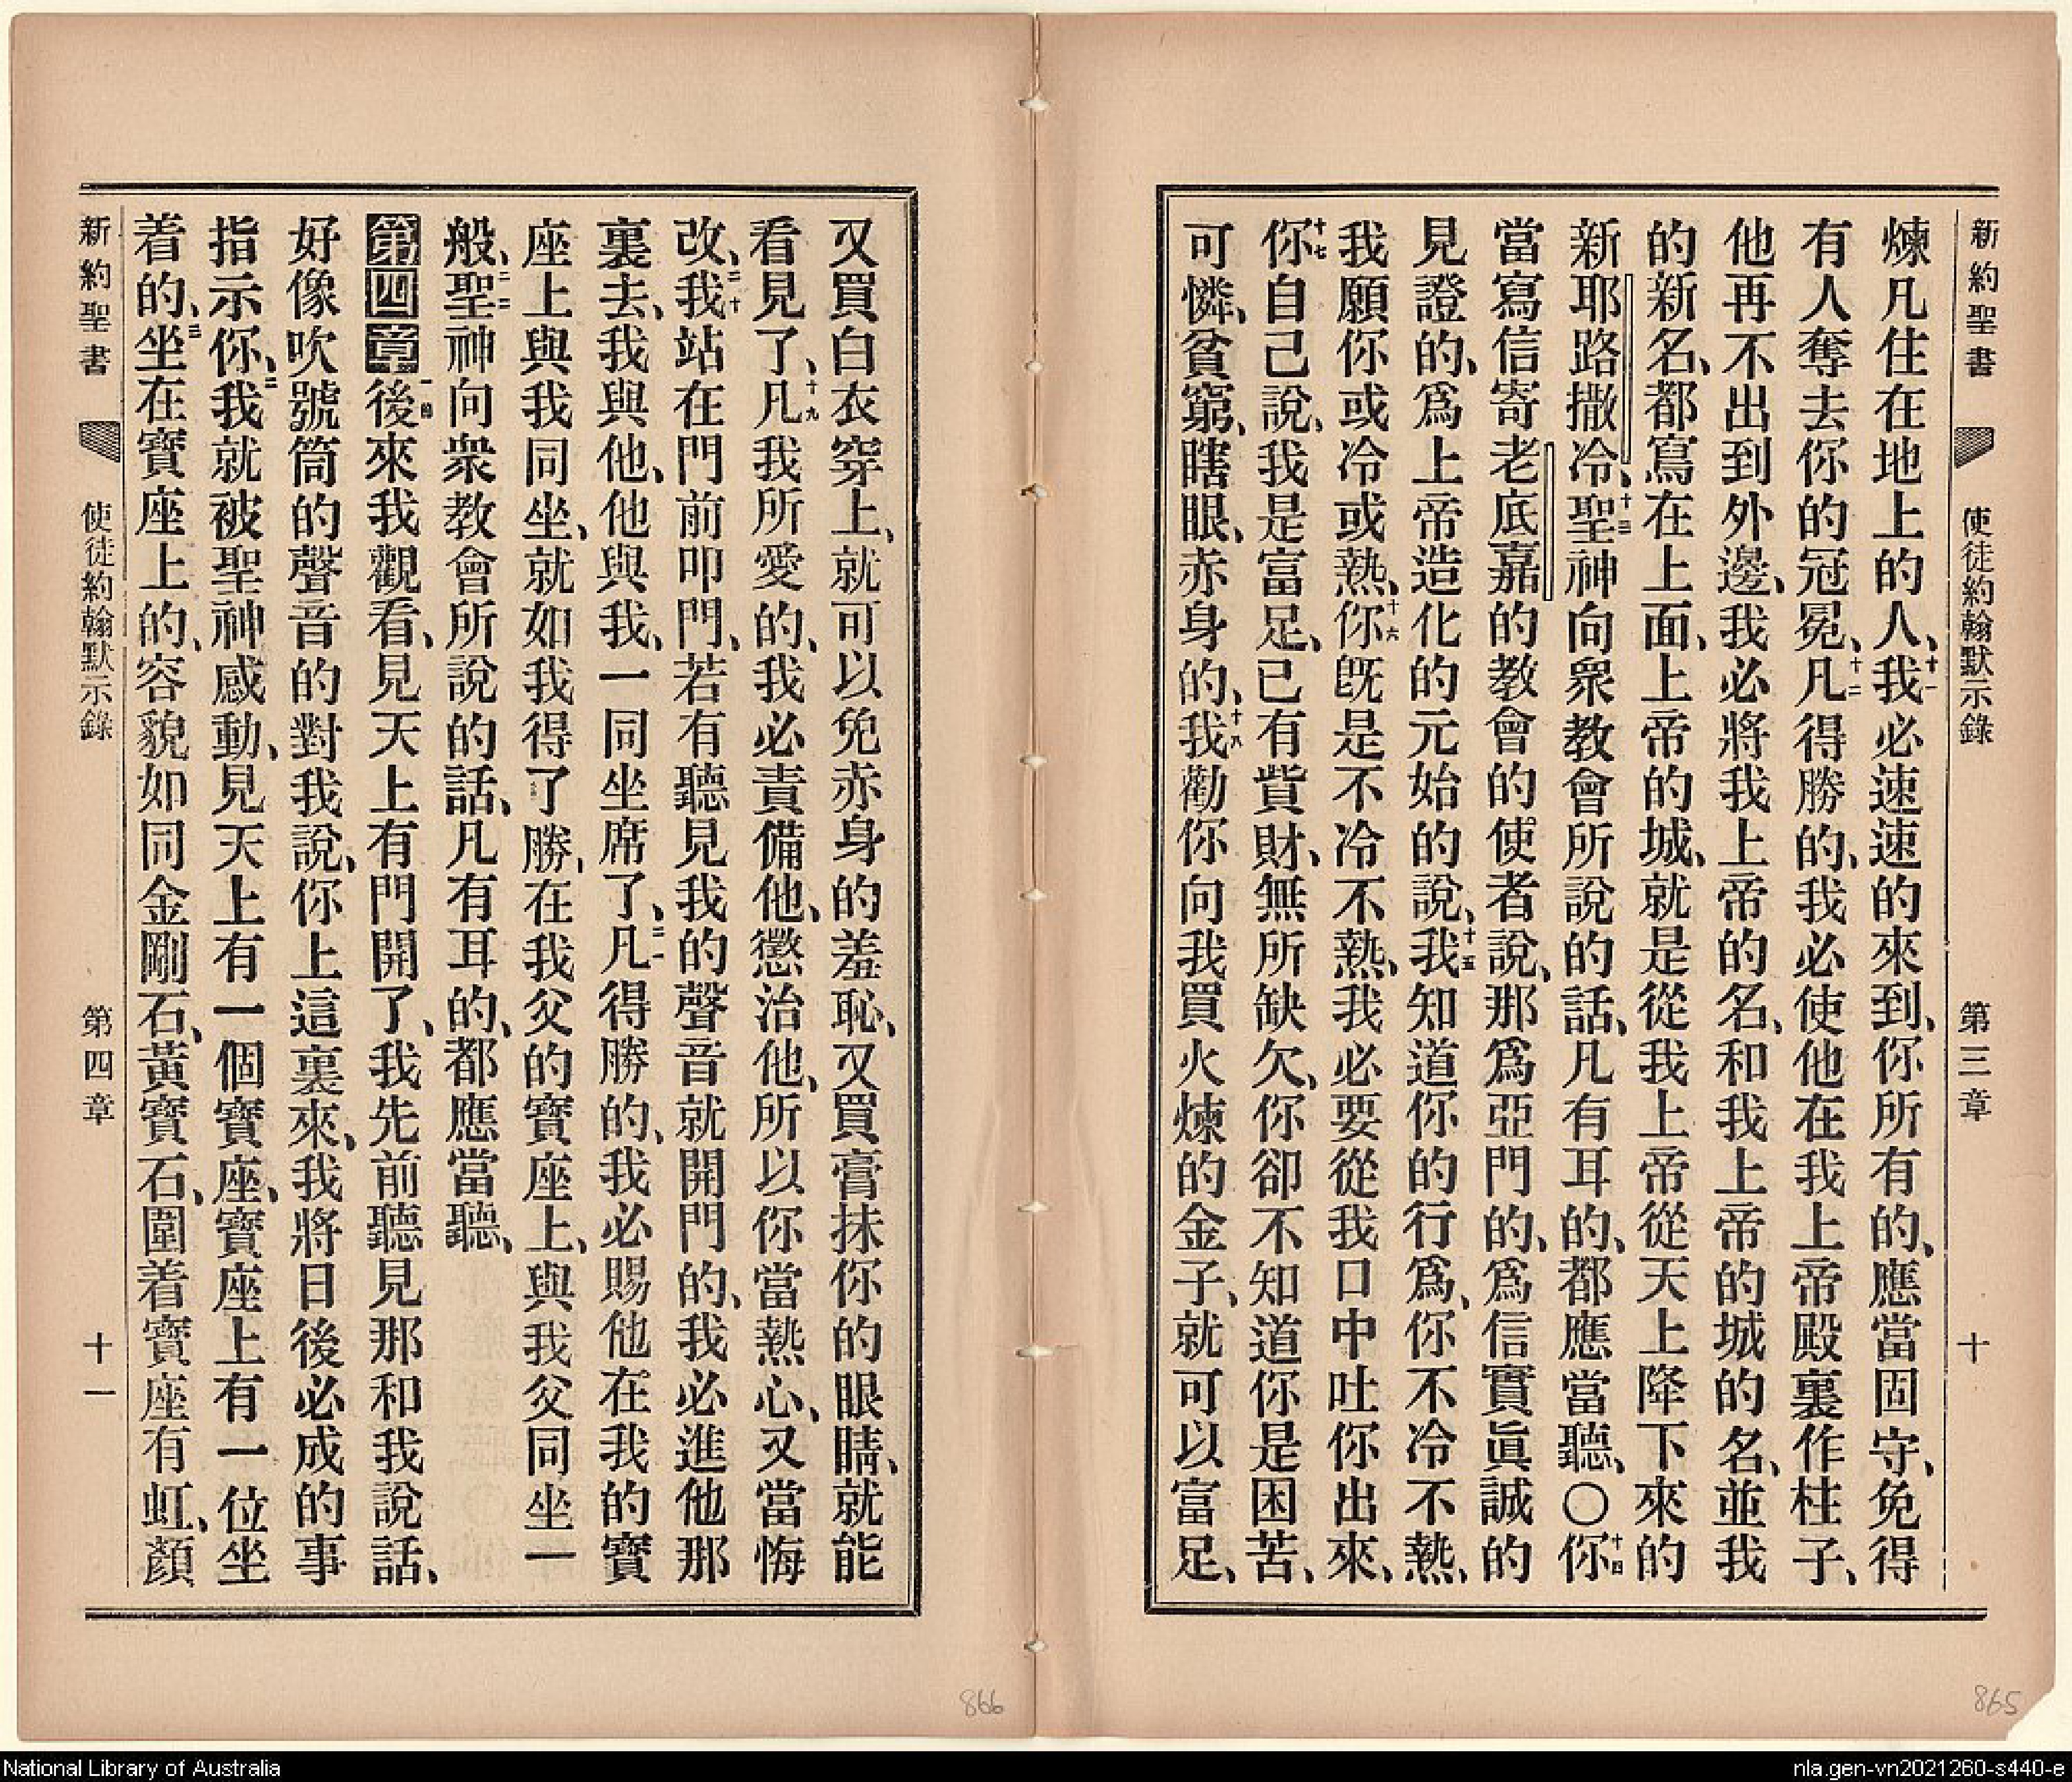 新約聖書 使徒約翰默示錄 第三章 十
煉凡住在地上的人、十一我必速速的來到、你所有的、應當固守、免得
有人奪去你的冠冕、十二凡得勝的、我必使他在我上帝殿裏作柱子、
他再不出到外邊、我必將我上帝的名、和我上帝的城的名、並我
的新名、都寫在上面、上帝的城、就是從我上帝從天上降下來的
新耶路撒冷、十三聖神向衆教會所說的話、凡有耳的、都應當聽、〇十四你
當寫信寄老底嘉的教會的使者說、那爲亞門的、爲信實眞誠的
見證的、爲上帝造化的元始的說、十五我知道你的行爲、你不冷不熱、
我願你或冷或熱、十六你旣是不冷不熱、我必要從我口中吐你出來、
十七你自己說、我是富足、已有貲財、無所缺欠、你卻不知道你是困苦、
可憐、貧窮、瞎眼、赤身的、十八我勸你向我買火煉的金子、就可以富足、
又買白衣穿上、就可以免赤身的羞恥、又買膏抹你的眼睛、就能
看見了、十九凡我所愛的、我必責備他、懲治他、所以你當熱心、又當悔
改、二十我站在門前叩門、若有聽見我的聲音就開門的、我必進他那
裏去、我與他、他與我、一同坐席了、二一凡得勝的、我必賜他在我的寶
座上與我同坐、就如我得了勝、在我父的寶座上、與我父同坐一
般、二二聖神向衆教會所說的話、凡有耳的、都應當聽、
第四章一節後來我觀看、見天上有門開了、我先前聽見那和我說話、
好像吹號筒的聲音的對我說、你上這裏來、我將日後必成的事
指示你、二我就被聖神感動、見天上有一個寶座、寶座上有一位坐
着的、三坐在寶座上的、容貌如同金剛石、黃寶石、圍着寶座有虹、顏
新約聖書 使徒約翰默示錄 第四章 十一
866
865
National Library of Australia
nla.gen-vn2021260-s440-e